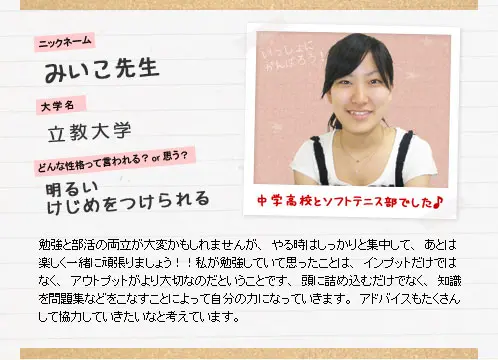 ニックネーム
みいこ先生
大学名
立教大学
どんな性格って言われる？or 思う？
明るい
けじめをつけられる
いっしょに
がんばろう！
中学高校とソフトテニス部でした♪
勉強と部活の両立が大変かもしれませんが、やる時はしっかりと集中して、あとは
楽しく一緒に頑張りましょう！！私が勉強していて思ったことは、インプットだけでは
なく、アウトプットがより大切なのだということです、頭に詰め込むだけでなく、知識
を問題集などをこなすことによって自分の力になっていきます。アドバイスもたくさん
して協力していきたいなと考えています。